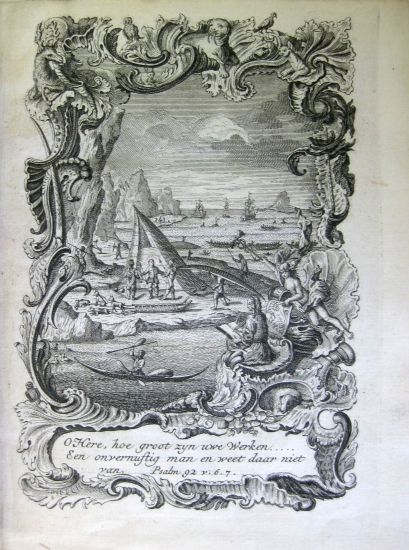 O Here, hoe groot zyn uwe Werken.....
Een onvernuftig man en weet daar niet
van. Psalm 92 v. 6. 7.